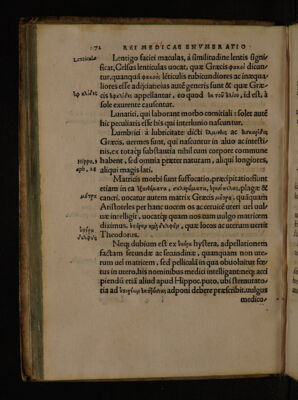 72 REI MEDICAE ENVMERATIO
Lenticulæ
Lentigo faciei maculas, á similitudine lentis signi
ficat, Celsus lenticulas uocat, quæ Græcis φακοὶ dicun
tur, quanquā φακοὶ lēticulis rubicundiores ac inæqua
liores esse adijciat eius autē generis sunt & quæ Græ
cis appellantur, eo quod id est, á
sole exurente causentur.
Lunatici, qui laborant morbo comitiali: solet autē
hic peculiaris esse his qui interlunio nascuntur.
Lumbrici á lubricitate dicti
Græcis, uermes sunt, qui nascuntur in aluo ac intesti
nis, ex tota substantia nihil cum corpore commune
habent, sed omnia præter naturam, aliqui longiores,
aliqui magis lati.
Matricis morbi sunt suffocatio, præcipitatio: fiunt
etiam in ea plagæ &
cancri, uocatur autem matrix Græcis μήτρα, quāquam
Aristoteles per hanc uocem os ac ceruicē uteri uel uul
uæ intelligit, uocatque quam nos cum uulgo matricem
dicimus, quæ locos ac uterum uertit
Theodorus.
Neque dubium est ex hystera, adpellationem
factam secundæ ac secundinæ, quanquam non ute
rum uel matricem, sed pelliculā in qua obuolutus fœ
tus in utero, his nominibus medici intelligant: neque acci
piendū etiā aliud apud Hippoc. puto, ubi sternutato
ria ad adponi debere præscribit. uulgus
medico-